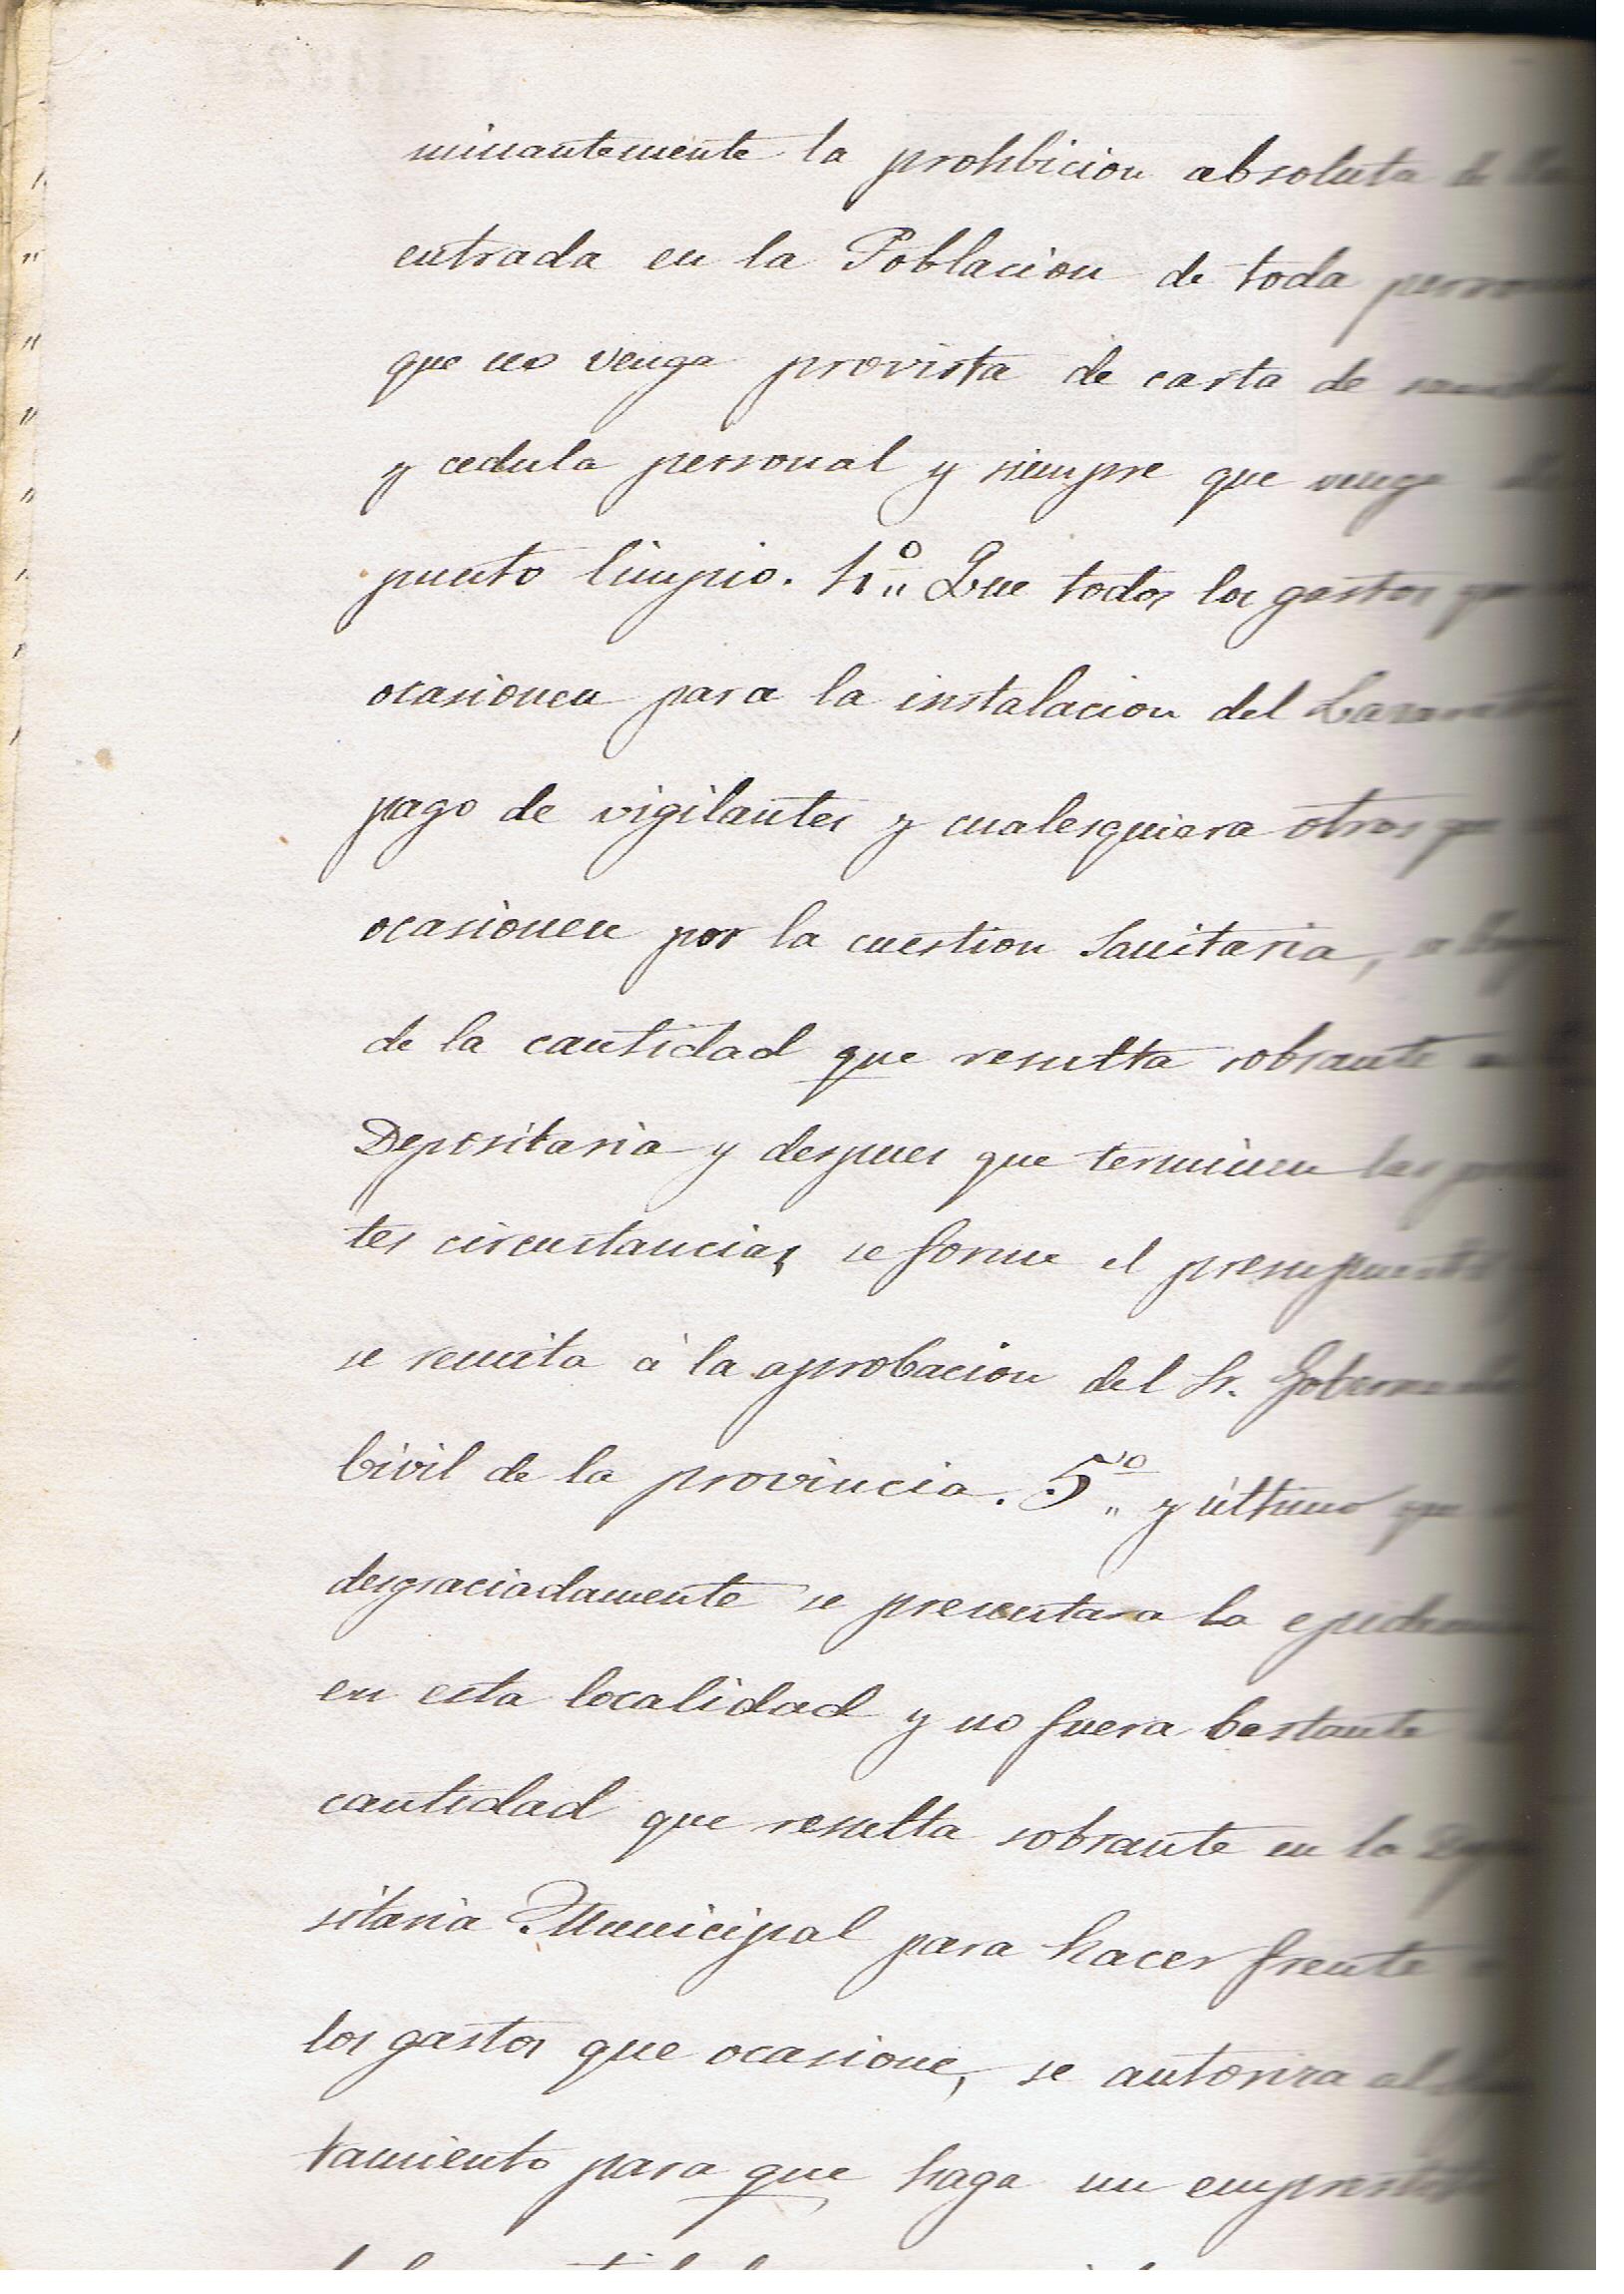 minantemente la prohbicion absoluta de
entrada en la Poblacion de toda persona
que no venga provista de carta de
y cedula personal y siempre que venga
punto limpio. 4º„ Que todos los gastos que
ocasionen para la instalacion del Lazareto
pago de vigilantes y cualesquiera otros que
ocasionen por la cuestion Sanitaria,
de la cantidad que resulta sobrante
Depositaria y despues que terminen las
tes circustancias, se forme el presupuesto
se remita à la aprobacion del Sr. Gobernador
Civil de la provincia. 5º„ y último que
desgraciadamente se presentara la epidemia
en esta localidad y no fuera bastante
cantidad que resulta sobrante en la Depo
sitaria Municipal para hacer frente
los gastos que ocasione, se autoriza al
tamiento para que haga un emprestito